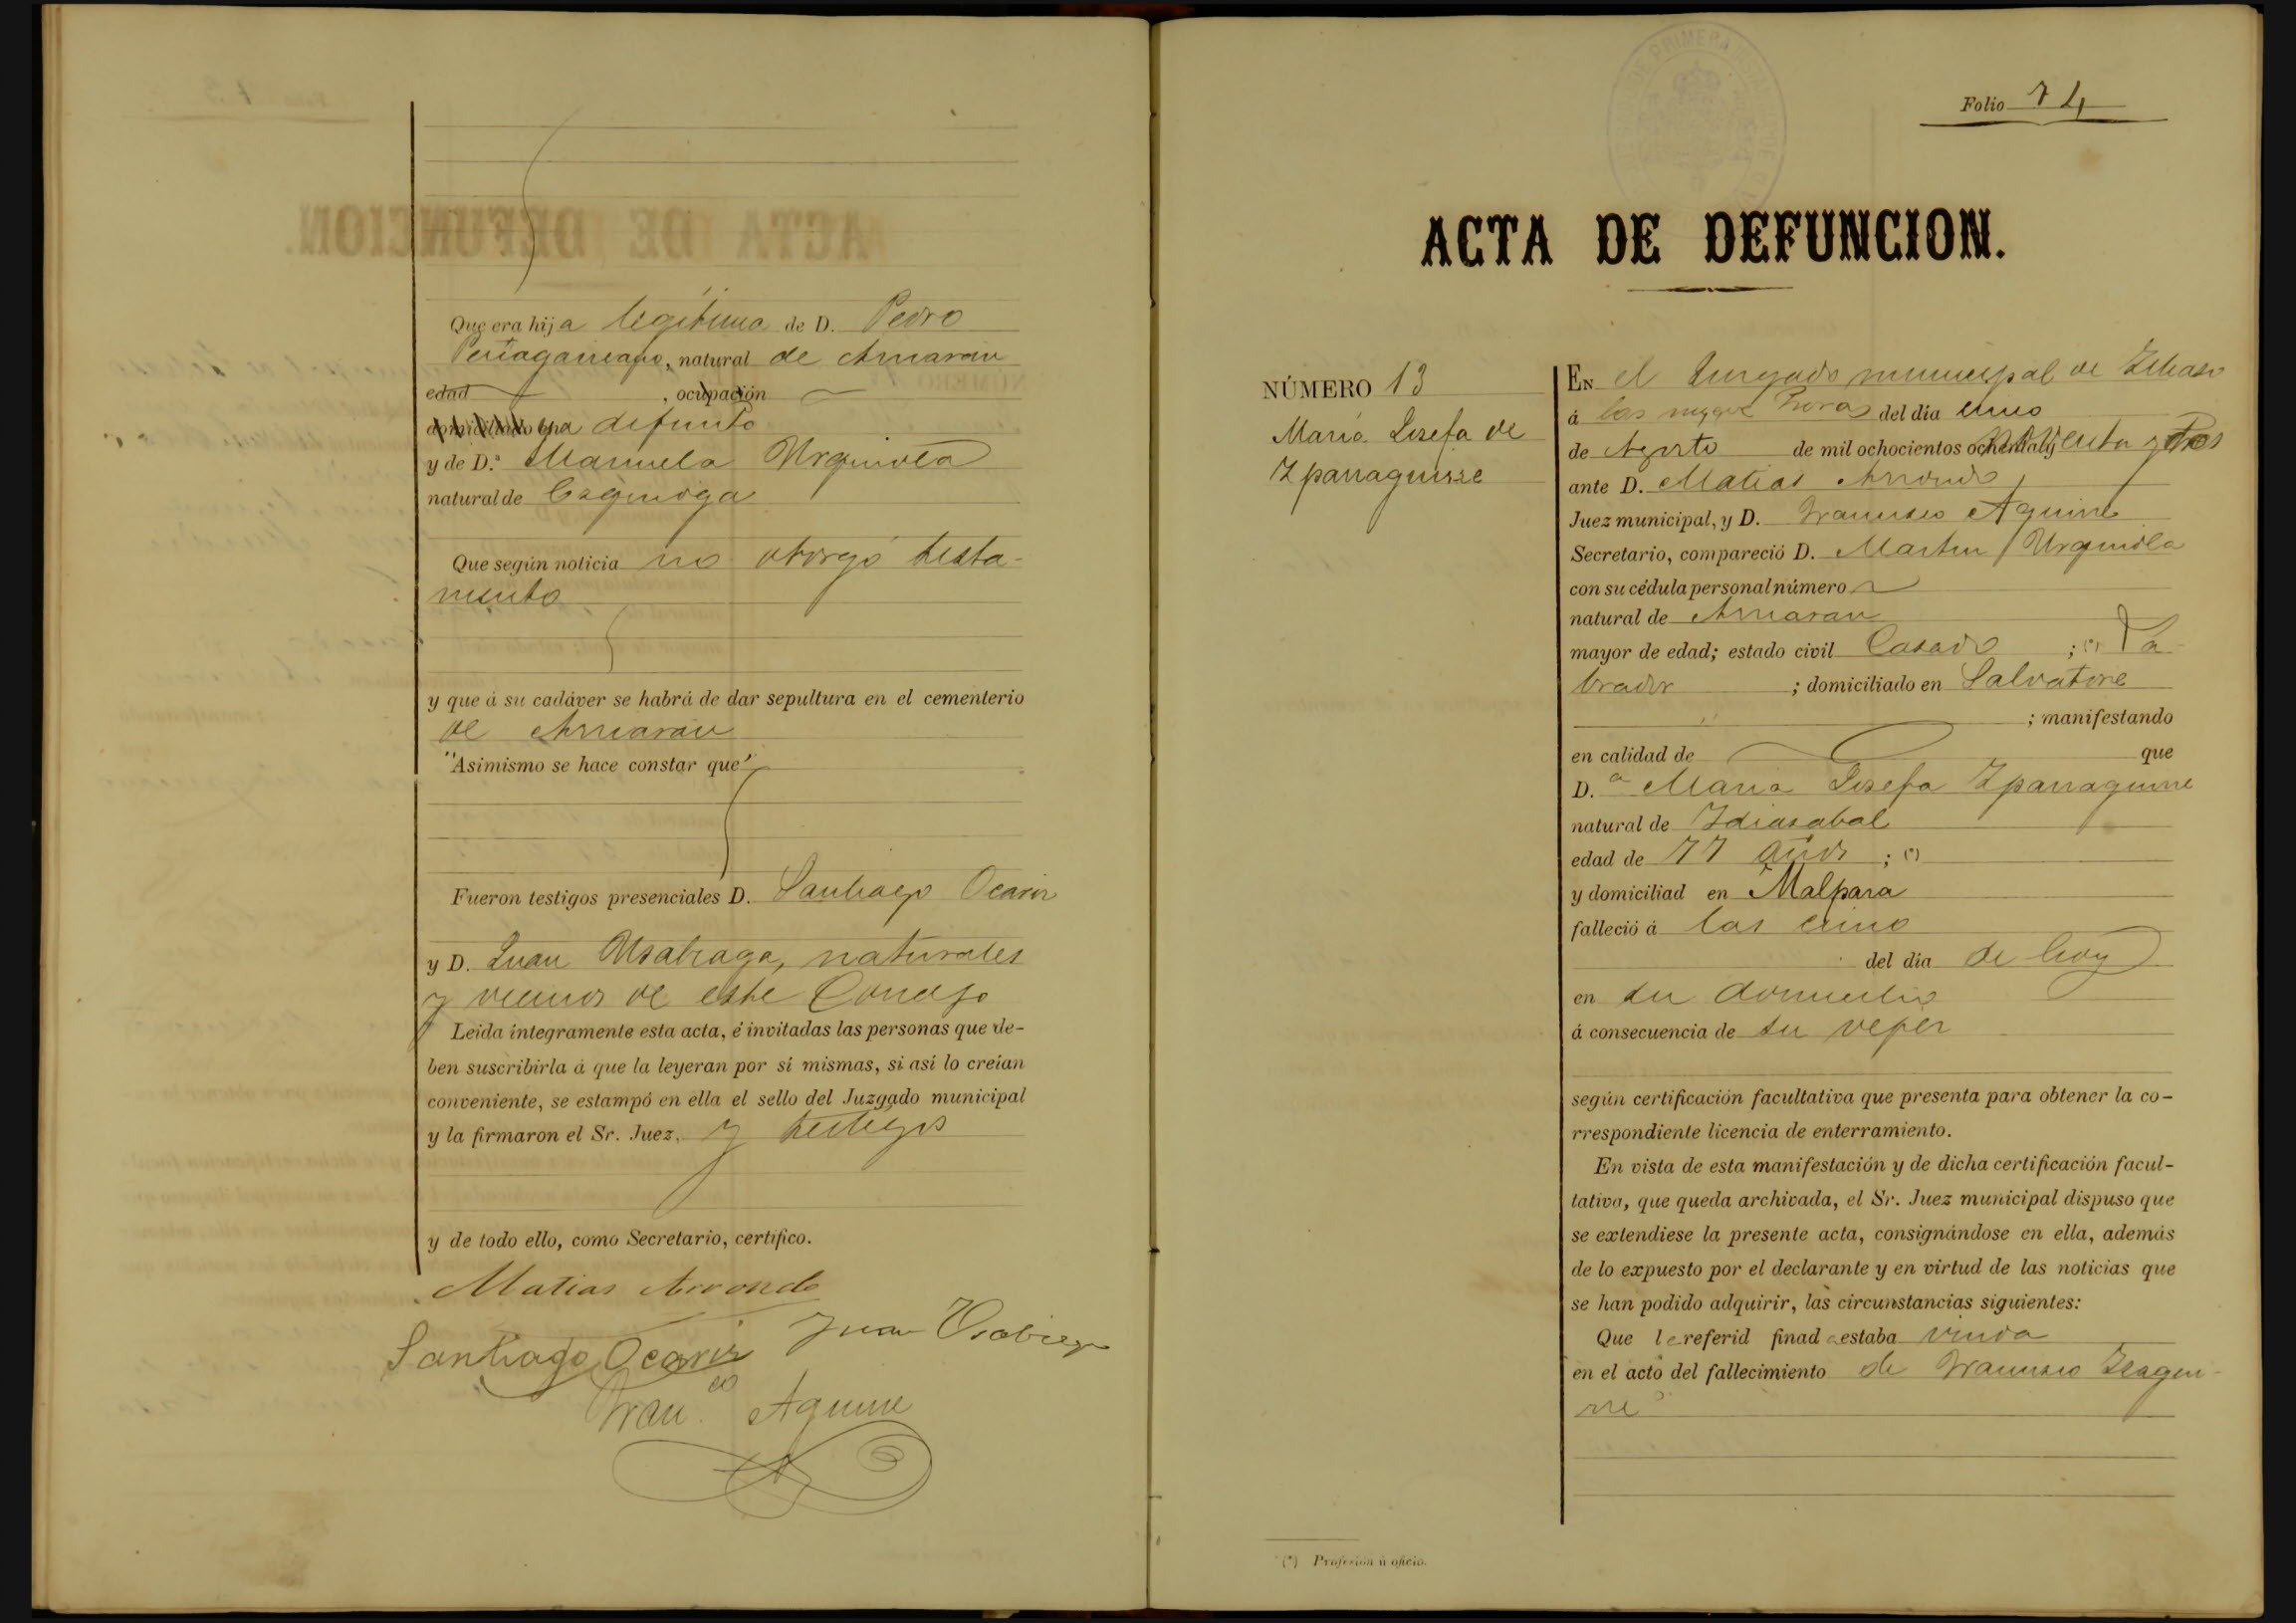 Que era hija legítima de D. Pedro
natural de Arriaran
edad , ocupación
domiciliado en difunto
y de D.ª Manuela Urquiola
natural de Ezquioga
Que según noticia no otorgó testa-
mento
y que á su cadáver se habrá de dar sepultura en el cementerio
de Arriaran
"Asimismo se hace constar que"
Fueron testigos presenciales D. Santiago Ocariz
y D. Juan Usabiaga, naturales
y vecinos de este Concejo
Leida íntegramente esta acta, é invitadas las personas que de-
ben suscribirla á que la leyeran por sí mismas, si así lo creían
conveniente, se estampó en ella el sello del Juzgado municipal
y la firmaron el Sr. Juez, y testigos
y de todo ello, como Secretario, certifico.
Matias Arrondo
Santiago Ocariz Juan Usabiaga
Fran.co Aguirre
Folio 74
ACTA DE DEFUNCION.
NÚMERO 13
Maria Josefa de
Yparraguirre
EN el Juzgado municipal de
á las nueve horas del dia cinco
de Agosto de mil ochocientos ochenta y noventa y tres
ante D. Matias Arrondo
Juez municipal, y D. Francisco Aguirre
Secretario, compareció D. Martin Urquiola
con su cédula personal número
natural de Arriaran
mayor de edad; estado civil Casado ; (*) La-
brador ; domiciliado en Salvatore
; manifestando
en calidad de que
D.ª Maria Josefa Yparraguirre
natural de Idiazabal
edad de 77 años ; (*)
y domiciliad en Malpara
falleció á las cinco
del dia de hoy
en su domicilio
á consecuencia de su vejez
según certificación facultativa que presenta para obtener la co-
rrespondiente licencia de enterramiento.
En vista de esta manifestación y de dicha certificación facul-
tativa, que queda archivada, el Sr. Juez municipal dispuso que
se extendiese la presente acta, consignándose en ella, además
de lo expuesto por el declarante y en virtud de las noticias que
se han podido adquirir, las circunstancias siguientes:
Que la referid finad a estaba viuda
en el acto del fallecimiento de Francisco Izagui-
rre
(*) Profesión ú oficio.